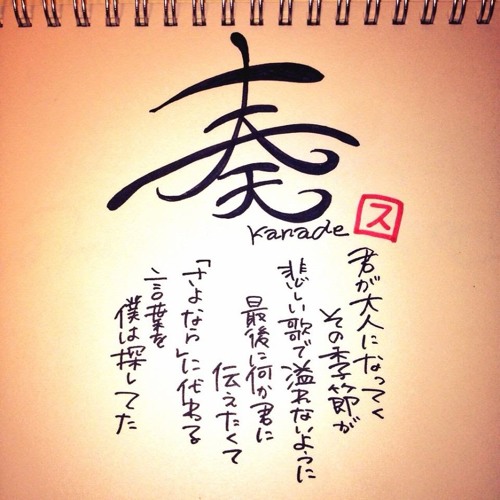 奏
kanade
ス
君が大人になってく
その季節が
悲しい歌で溢れないように
最後に何か君に
伝えたくて
「さよなら」に代わる
言葉を
僕は探してた